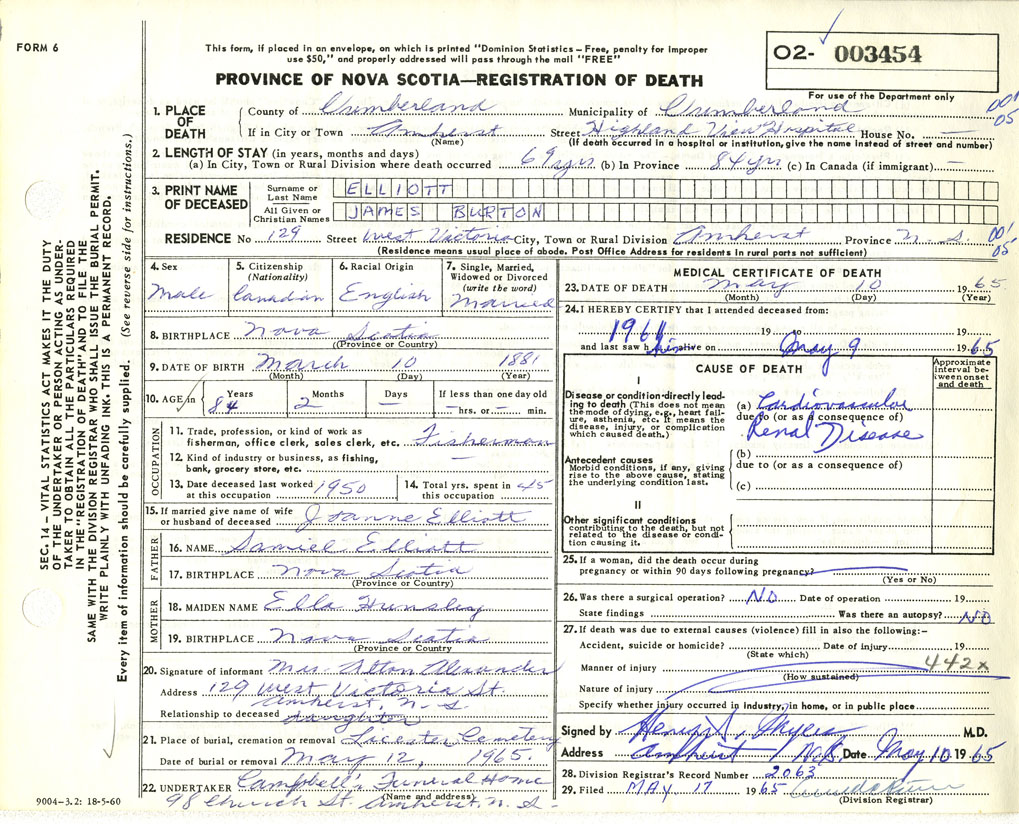 FORM 6
This form, if placed in an envelope, on which is printed "Dominion Statistics – Free, penalty for improper
use $50," and properly addressed will pass through the mail "FREE"
PROVINCE OF NOVA SCOTIA—REGISTRATION OF DEATH
O2- 003454
For use of the Department only
1. PLACE OF DEATH
County of Cumberland Municipality of Cumberland 001
05
If in City or Town Amherst Street Highland View Hospital House No. —
(Name) (If death occurred in a hospital or institution, give the name instead of street and number)
2. LENGTH OF STAY (in years, months and days)
(a) In City, Town or Rural Division where death occurred 69 yrs (b) In Province 84 yrs (c) In Canada (if immigrant) —
3. PRINT NAME OF DECEASED
Surname or Last Name ELLIOTT
All Given or Christian Names JAMES BURTON
RESIDENCE No 129 Street West Victoria City, Town or Rural Division Amherst Province N. S. 001
05
(Residence means usual place of abode. Post Office Address for residents in rural parts not sufficient)
4. Sex
Male
5. Citizenship
(Nationality)
Canadian
6. Racial Origin
English
7. Single, Married,
Widowed or Divorced
(write the word)
Married
8. BIRTHPLACE Nova Scotia
(Province or Country)
9. DATE OF BIRTH March 10 1881
(Month) (Day) (Year)
10. AGE in Years 84 Months 2 Days — If less than one day old
— hrs. or — min.
OCCUPATION
11. Trade, profession, or kind of work as
fisherman, office clerk, sales clerk, etc. Fisherman
12. Kind of industry or business, as fishing,
bank, grocery store, etc. —
13. Date deceased last worked
at this occupation 1950
14. Total yrs. spent in
this occupation 45
15. If married give name of wife
or husband of deceased Joanne Elliott
FATHER
16. NAME Samiel Elliott
17. BIRTHPLACE Nova Scotia
(Province or Country)
MOTHER
18. MAIDEN NAME Ella
19. BIRTHPLACE Nova Scotia
(Province or Country)
20. Signature of informant Mrs. Alton Alexander
Address 129 West Victoria St.
Amherst, N. S.
Relationship to deceased daughter
21. Place of burial, cremation or removal Licester Cemetery
Date of burial or removal May 12, 1965.
22. UNDERTAKER Campbell's Funeral Home
(Name and address)
98 Church St. Amherst, N. S.
9004-3.2: 18-5-60
MEDICAL CERTIFICATE OF DEATH
23. DATE OF DEATH May 10 1965
(Month) (Day) (Year)
24. I HEREBY CERTIFY that I attended deceased from:
1961 19 to 19
and last saw him alive on May 9 1965
CAUSE OF DEATH
Approximate
interval be-
tween onset
and death
I
Disease or condition directly lead-
ing to death (This does not mean
the mode of dying, e.g., heart fail-
ure, asthenia, etc. It means the
disease, injury, or complication
which caused death.)
(a) Cardiovascular
due to (or as a consequence of)
Renal Disease
Antecedent causes
Morbid conditions, if any, giving
rise to the above cause, stating
the underlying condition last.
(b)
due to (or as a consequence of)
(c)
II
Other significant conditions
contributing to the death, but not
related to the disease or condi-
tion causing it.
25. If a woman, did the death occur during
pregnancy or within 90 days following pregnancy?
(Yes or No)
26. Was there a surgical operation? NO Date of operation 19
State findings Was there an autopsy? NO
27. If death was due to external causes (violence) fill in also the following:–
Accident, suicide or homicide? Date of injury 19
(State which)
Manner of injury 442x
(How sustained)
Nature of injury
Specify whether injury occurred in industry, in home, or in public place
Signed by M.D.
Address Amherst N.S. Date May 10 1965
28. Division Registrar's Record Number 2063
29. Filed MAY 17 1965
(Division Registrar)
SEC. 14 – VITAL STATISTICS ACT MAKES IT THE DUTY
OF THE UNDERTAKER OR PERSON ACTING AS UNDER-
TAKER TO OBTAIN ALL THE PARTICULARS REQUIRED
IN THE "REGISTRATION OF DEATH" AND TO FILE THE
SAME WITH THE DIVISION REGISTRAR WHO SHALL ISSUE THE BURIAL PERMIT.
WRITE PLAINLY WITH UNFADING INK. THIS IS A PERMANENT RECORD.
Every item of information should be carefully supplied. (See reverse side for instructions.)